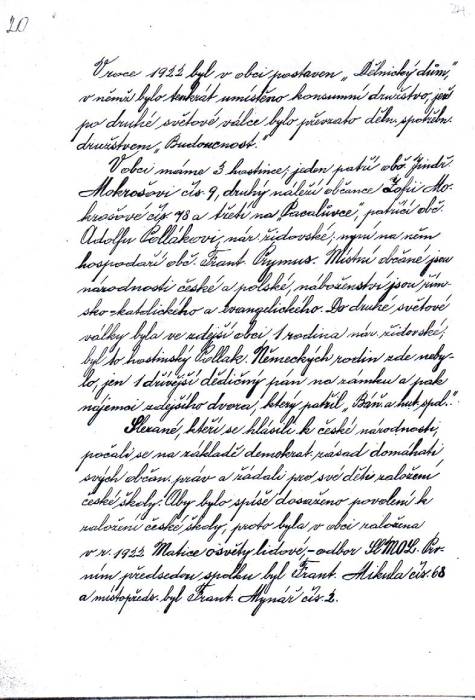 20
V roce 1922 byl v obci postaven „Dělnický dům“,
v němž bylo tenkrát umístěno konsumní družstvo, jež
po druhé světové válce bylo převzato děln. spotřebn.
družstvem „Budoucnost.“
V obci máme 3 hostince; jeden patří obč. Jindř.
Mokrošovi čís. 9, druhý náleží občance Žofii Mo-
krošové čís. 78 a třetí na „Pacalůvce“, patřící obč.
Adolfu Pollákovi, nár. židovské; nyní na něm
hospodaří obč. Frant. Prymus. Místní občané jsou
národnosti české a polské, náboženství jsou řím-
sko-katolického a evangelického. Do druhé světové
války byla ve zdejší obci 1 rodina nár. židovské;
byl to hostinský Pollak. Německých rodin zde neby-
lo, jen 1 dřívější dědičný pán na zámku a pak
nájemci zdejšího dvora, který patřil „Báň. a hut. spol.“
Slezané, kteří se hlásili k české národnosti,
počali se na základě demokrat. zásad domáhati
svých občan. práv a žádali pro své děti založení
české školy. Aby bylo spíše dosaženo povolení k
založení české školy, proto byla v obci založena
v r. 1922 Matice osvěty lidové, – odbor SMOL. Pr-
ním předsedou spolku byl Frant. Mikula čís. 68
a místopředs. byl Frant. Mynář čís. 2.